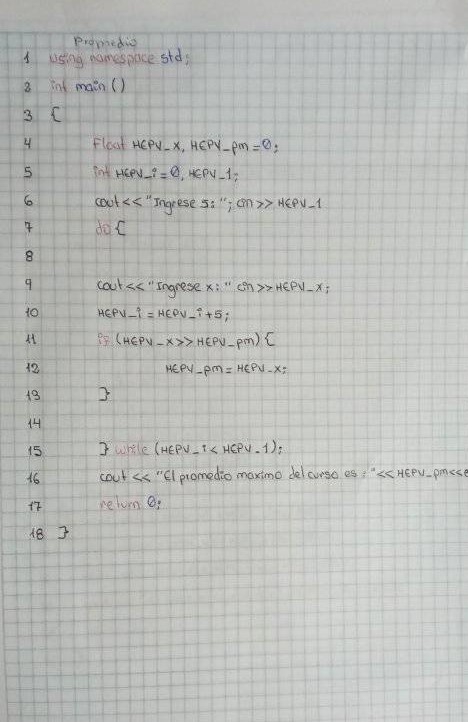 Promedio
1 using namespace std;
2 int main ()
3 {
4 Float HEPV_x, HEPV_pm = 0;
5 int HEPV_i = 0, HEPV_1;
6 cout << "Ingrese 5: "; cin >> HEPV_1
7 do {
8
9 cout << "Ingrese x: " cin >> HEPV_x;
10 HEPV_i = HEPV_i + 5;
11 if (HEPV_x >> HEPV_pm) {
12 HEPV_pm = HEPV_x;
13 }
14
15 } while (HEPV_i < HEPV_1);
16 cout << "El promedio maximo del curso es: " << HEPV_pm <<e
17 return 0;
18 }